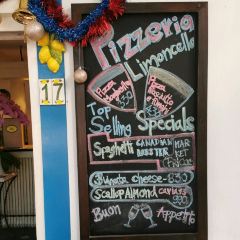 17
Pizzeria
Limoncello
Pizza
Pizza
Prosciutto
Top
Selling
Specials
Spaghetti CANADIAN
LOBSTER
MAR
KET
PRICE
Burrata cheese-830
Scallop Almond
990
Buon Appetito